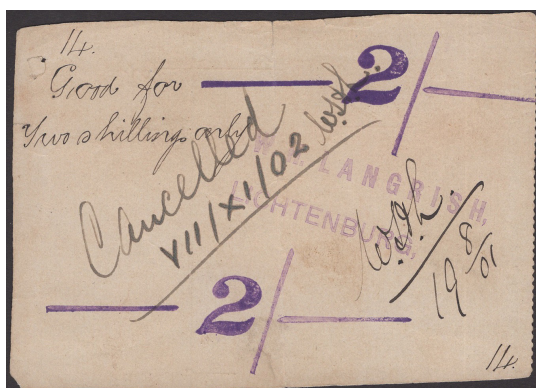 14.
Good for
2/
Two shillings only
Cancelled
VIII/XI/02
W. LANGRISH,
LICHTENBURG,
19/8/01
2/
14.